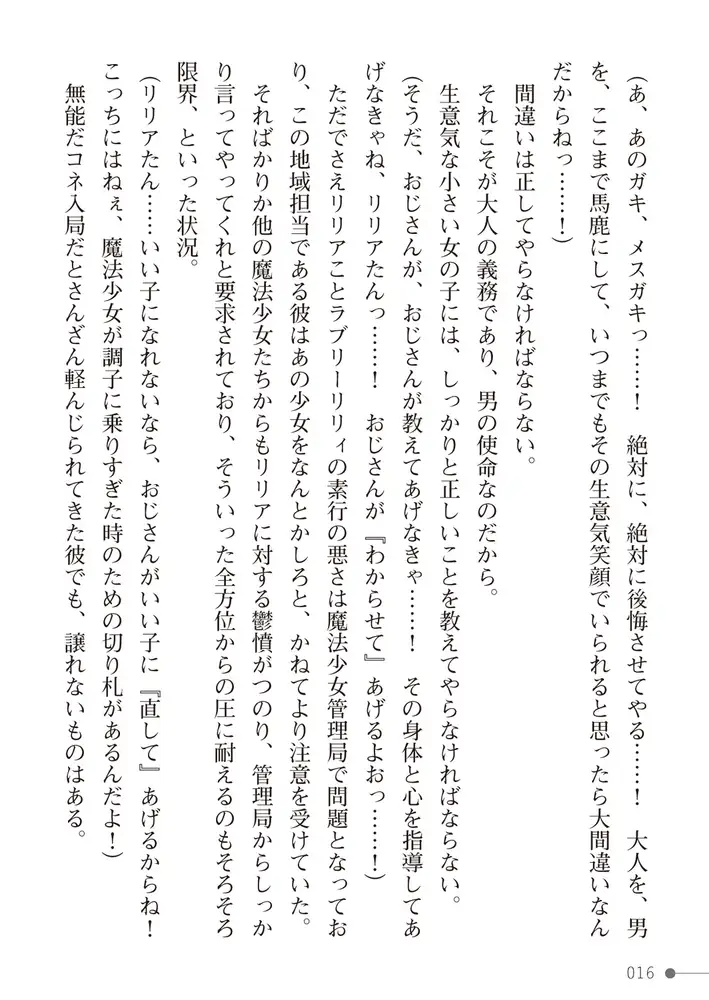 （あ、あのガキ、メスガキっ……！　絶対に、絶対に後悔させてやる……！　大人を、男
を、ここまで馬鹿にして、いつまでもその生意気笑顔でいられると思ったら大間違いなん
だからねっ……！）
間違いは正してやらなければならない。
それこそが大人の義務であり、男の使命なのだから。
生意気な小さい女の子には、しっかりと正しいことを教えてやらなければならない。
（そうだ、おじさんが、おじさんが教えてあげなきゃ……！　その身体と心を指導してあ
げなきゃね、リリアたんっ……！　おじさんが『わからせて』あげるよおっ……！）
ただでさえリリアことラブリーリリィの素行の悪さは魔法少女管理局で問題となってお
り、この地域担当である彼はあの少女をなんとかしろと、かねてより注意を受けていた。
そればかりか他の魔法少女たちからもリリアに対する鬱憤がつのり、管理局からしっか
り言ってやってくれと要求されており、そういった全方位からの圧に耐えるのもそろそろ
限界、といった状況。
（リリアたん……いい子になれないなら、おじさんがいい子に『直して』あげるからね！
こっちにはねぇ、魔法少女が調子に乗りすぎた時のための切り札があるんだよ！）
無能だコネ入局だとさんざん軽んじられてきた彼でも、譲れないものはある。
016